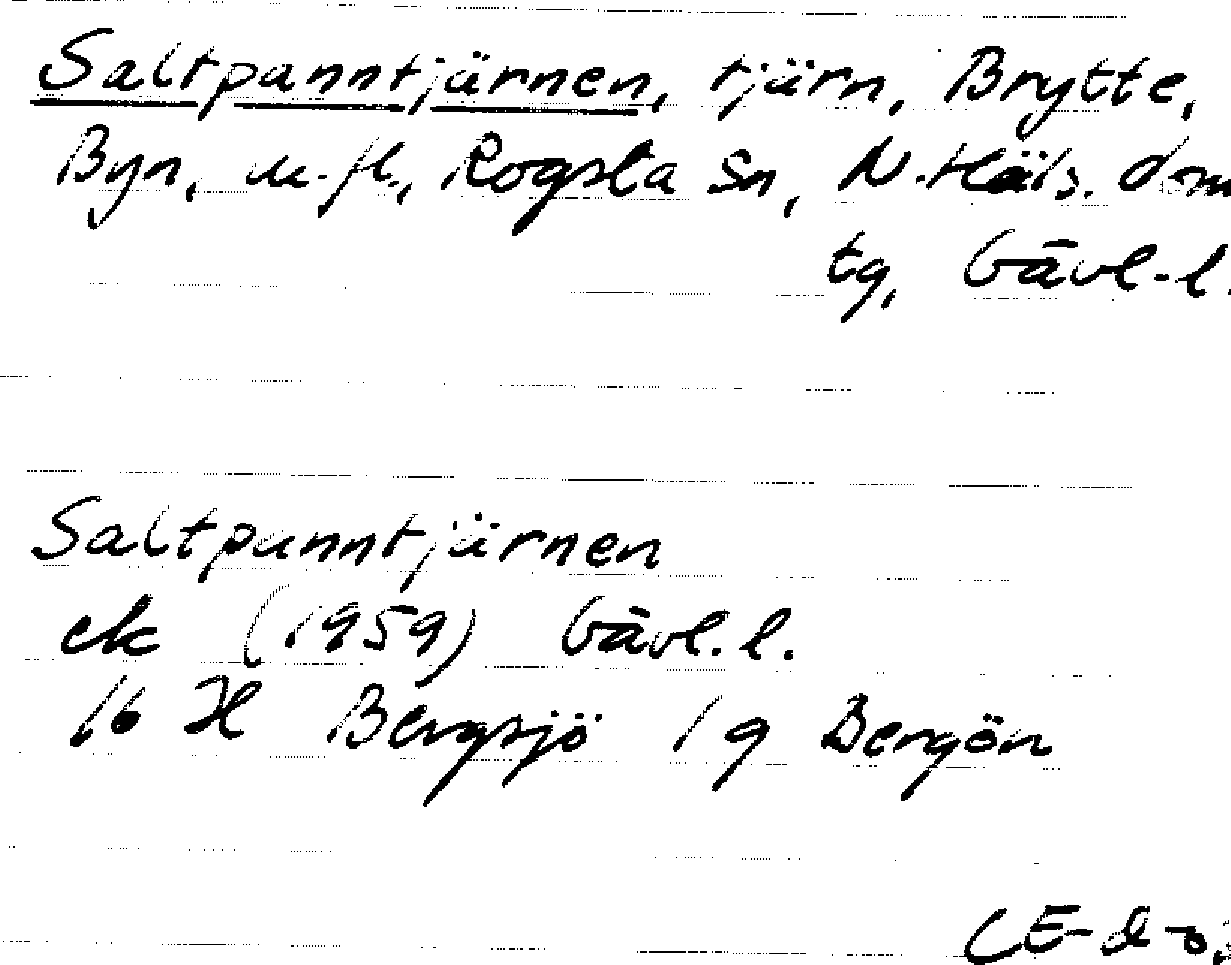 Saltpanntjärnen, tjärn, Brytte,
Byn, m.fl., Rogsta sn, N. Häls. dom
tg, Gävl-l.
Saltpanntjärnen
ek (1959) Gävl.l.
16 H Bergsjö 1 g Bergön